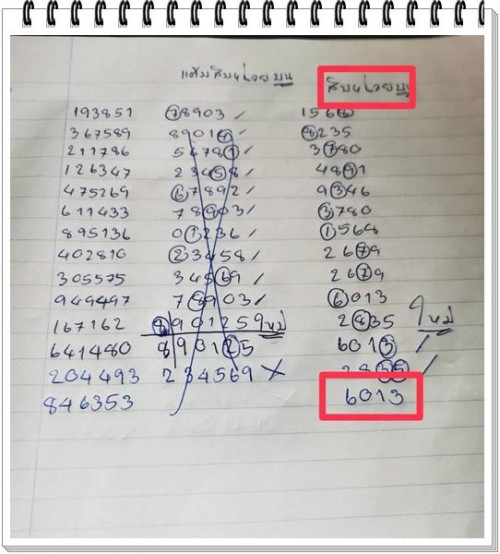 แต้มสิบหน่วยบน สิบหน่วยบน
193851 78903 / 1566
367589 89014 / 8235
211786 56781 / 3780
126347 23458 / 4891
475269 67892 / 9346
611433 78903 / 3780
895136 01236 / 1568
402810 23458 / 2679
305575 34569 / 2679
949497 78903 / 6013
167162 8901259 ใหม่ 2835 ใหม่
641480 890125 6013 /
204493 234569 X 2835 /
846353 6013